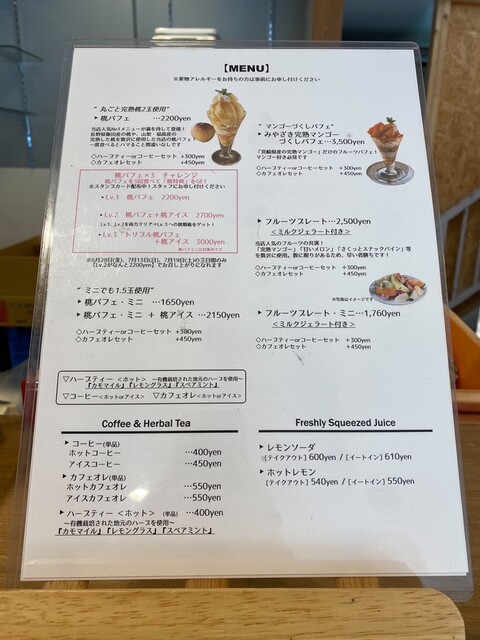 【MENU】
※果物アレルギーをお持ちの方は事前にお申し付けください
“ 丸ごと完熟桃2玉使用”
▶ 桃パフェ …2200yen
当店人気No1メニューが満を持して登場！
完熟した桃を贅沢に使用した当店の桃パフェ
一度食べるとハマること間違いなしです
◇ハーブティーorコーヒーセット +300yen
◇カフェオレセット +450yen
桃パフェ×3 チャレンジ
桃パフェを3回食べて「桃特典」をGET
※スタンスカード配布中！スタッフにお申し付けください
▶Lv.1 桃パフェ 2200yen
▶Lv.2 桃パフェ＋桃アイス 2700yen
Lv.1、Lv.2を両方クリア=Lv.3への挑戦権をゲット！
▶Lv.3 “トリプル桃パフェ
＋桃アイス 3000yen
※6月28日(金)、7月13日(日)、7月19日(土)の三日間のみ
【Lv.2がなんと2200yen】でお召し上がりになれます
“ ミニでも1.5玉使用”
▶ 桃パフェ・ミニ …1650yen
▶ 桃パフェ・ミニ ＋ 桃アイス …2150yen
◇ハーブティーorコーヒーセット +300yen
◇カフェオレセット +450yen
“ マンゴーづくしパフェ”
▶ みやざき完熟マンゴー
づくしパフェ…3,500yen
「宮崎県産の完熟マンゴー」だけのフルーツパフェ！
マンゴー好き必見です
◇ハーブティーorコーヒーセット +300yen
◇カフェオレセット +450yen
▶ フルーツプレート…2,500yen
＜ミルクジェラート付き＞
当店人気のフルーツの共演！
「完熟マンゴー」「甘いメロン」「さくっとスナックパイン」等
を贅沢に使用。数に限りがあるため、早い者勝ちです！
◇ハーブティーorコーヒーセット +300yen
◇カフェオレセット +450yen
※写真はイメージです
▶ フルーツプレート・ミニ…1,760yen
＜ミルクジェラート付き＞
◇ハーブティーorコーヒーセット +300yen
◇カフェオレセット +450yen
▽ハーブティー ＜ホット＞ 〜有機栽培された地元のハーブを使用〜
『カモマイル』『レモングラス』『スペアミント』
▽コーヒー＜ホットorアイス＞ ▽カフェオレ＜ホットorアイス＞
Coffee & Herbal Tea
▶ コーヒー(単品)
ホットコーヒー …400yen
アイスコーヒー …450yen
▶ カフェオレ(単品)
ホットカフェオレ …550yen
アイスカフェオレ …550yen
▶ ハーブティー ＜ホット＞ (単品) …400yen
〜有機栽培された地元のハーブを使用〜
『カモマイル』『レモングラス』『スペアミント』
Freshly Squeezed Juice
▶ レモンソーダ
[テイクアウト] 600yen / [イートイン] 610yen
▶ ホットレモン
[テイクアウト] 540yen / [イートイン] 550yen